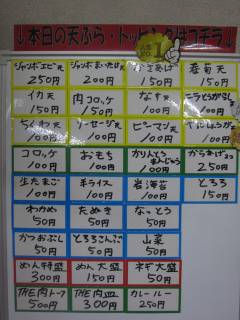 ↓本日の天ぷら・トッピングはコチラ↓
人気No.1
ジャンボエビ天 250円
ジャンボまいたけ天 200円
とりあげ 150円
春菊天 150円
イカ天 150円
肉コロッケ 150円
なす天 100円
100円
ちくわ天 100円
ソーセージ天 100円
ピーマン天 100円
100円
コロッケ 100円
おもち 100円
かりんとうまんじゅう 100円
からあげ 250円
生たまご 100円
半ライス 100円
岩海苔 100円
とろろ 150円
わかめ 50円
たぬき 50円
なっとう 50円
かつおぶし 50円
とろろこんぶ 50円
山菜 50円
めん特盛 300円
めん大盛 150円
ネギ大盛 50円
THE肉トーフ 500円
THE肉皿 300円
カレールー 250円